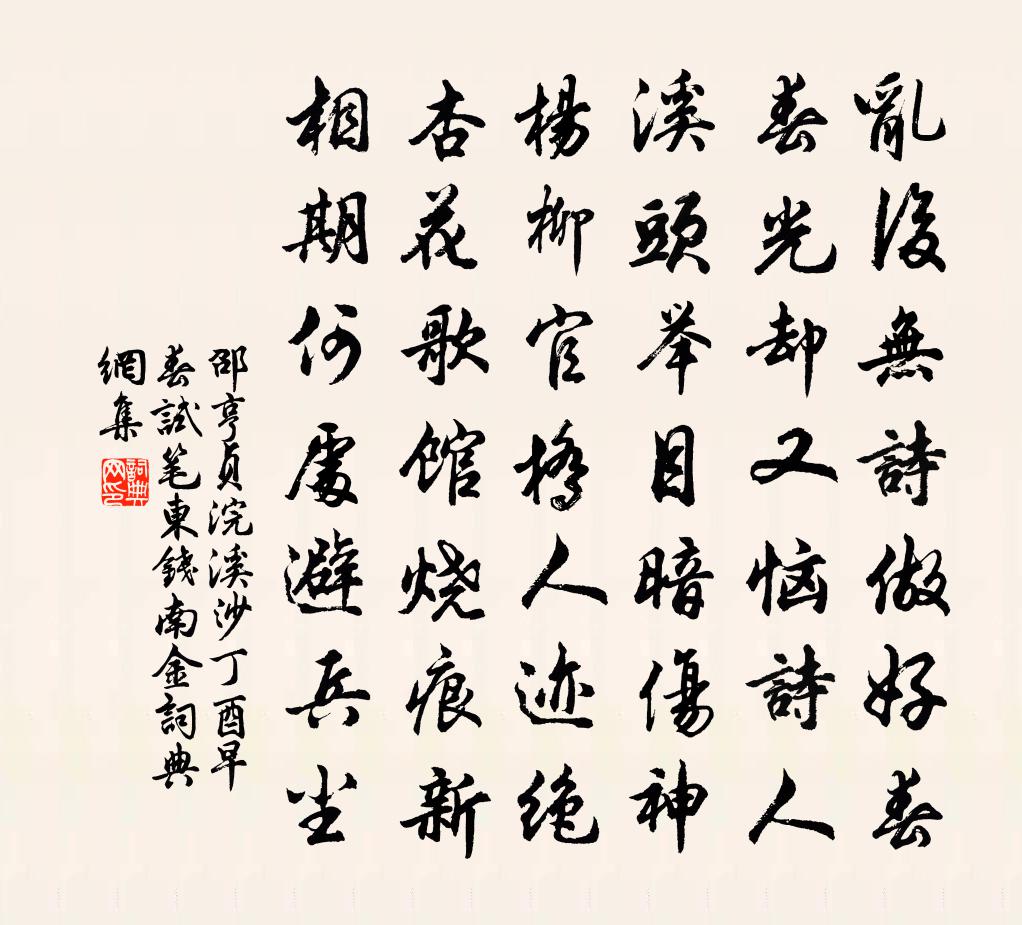 亂後無詩做好春
春光却又恼詩人
溪頭举目暗傷神
楊柳官橋人迹绝
杏花歌馆烧痕新
相期何處避兵尘
邵亨貞浣溪沙丁酉早
春試笔東錢南金詞典
網集
詞典网印